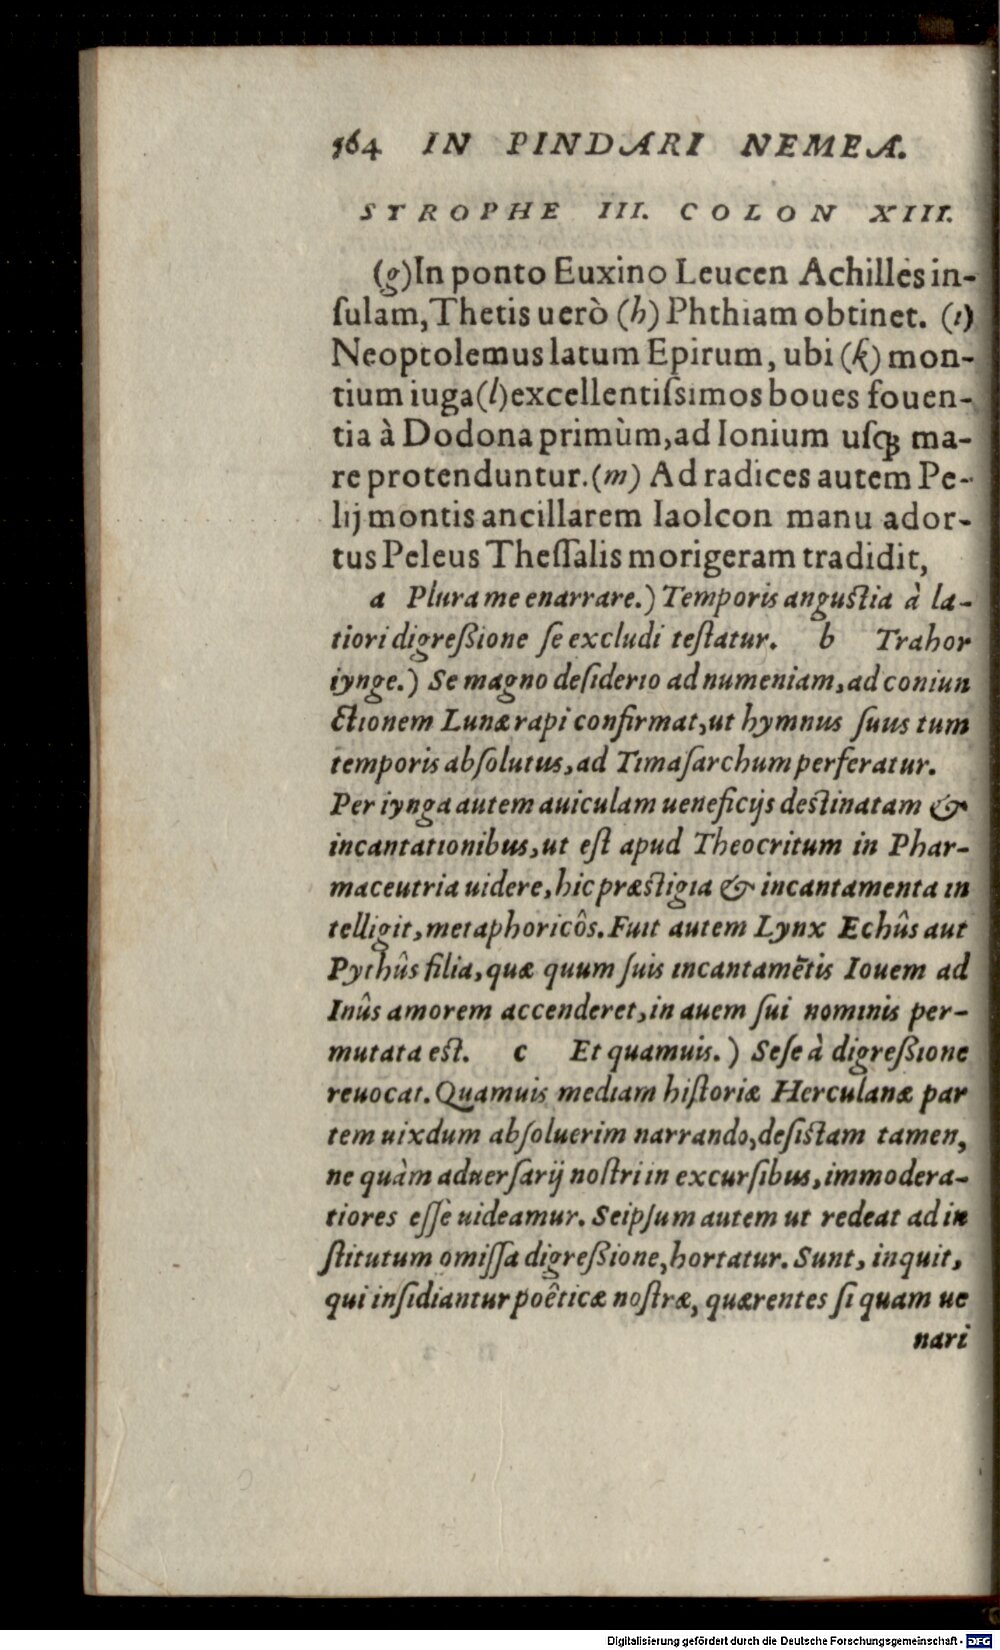 564 IN PINDARI NEMEA.
STROPHE III. COLON XIII.
(g) In ponto Euxino Leucen Achilles in-
ſulam, Thetis uerò (h) Phthiam obtinet. (i)
Neoptolemus latum Epirum, ubi (k) mon-
tium iuga (l) excellentiſsimos boues fouen-
tia à Dodona primùm, ad Ionium uſqꝫ ma-
re protenduntur. (m) Ad radices autem Pe-
lij montis ancillarem Iaolcon manu ador-
tus Peleus Theſſalis morigeram tradidit,
a Plura me enarrare.) Temporis anguſtia à la-
tiori digreßione ſe excludi teſtatur. b Trahor
iynge.) Se magno deſiderio ad numeniam, ad coniun
ctionem Lunæ rapi confirmat, ut hymnus ſuus tum
temporis abſolutus, ad Timaſarchum perferatur.
Per iynga autem auiculam ueneficijs deſtinatam &
incantationibus, ut eſt apud Theocritum in Phar-
maceutria uidere, hic præſtigia & incantamenta in
telligit, metaphoricôs. Fuit autem Lynx Echûs aut
Pythûs filia, quæ quum ſuis incantamētis Iouem ad
Inûs amorem accenderet, in auem ſui nominis per-
mutata eſt. c Et quamuis.) Seſe à digreßione
reuocat. Quamuis mediam hiſtoriæ Herculanæ par
tem uixdum abſoluerim narrando, deſiſtam tamen,
ne quàm aduerſarij noſtri in excurſibus, immodera-
tiores eſſe uideamur. Seipſum autem ut redeat ad in
ſtitutum omiſſa digreßione, hortatur. Sunt, inquit,
qui inſidiantur poêticæ noſtræ, quærentes ſi quam ue
nari
Digitalisierung gefördert durch die Deutsche Forschungsgemeinschaft - DFG